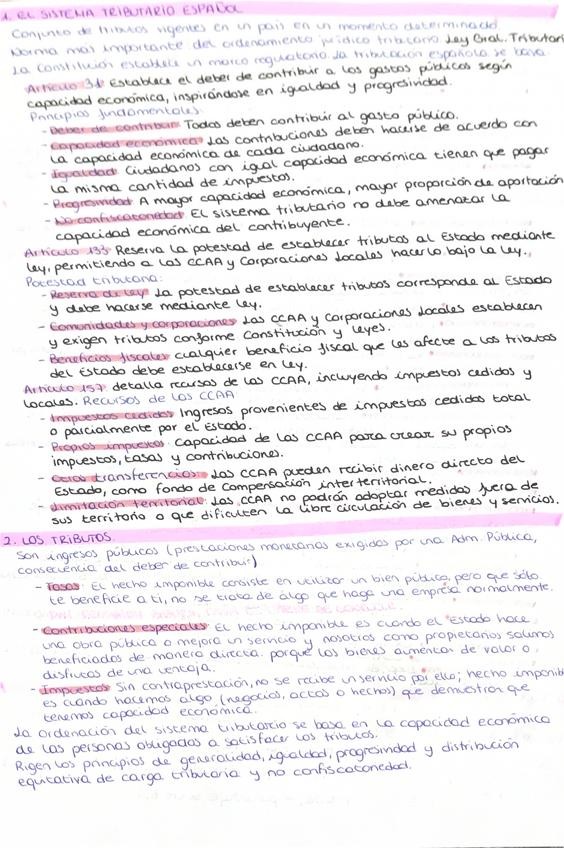 1. EL SISTEMA TRIBUTARIO ESPAÑOL
Conjunto de tributos vigentes en un país en un momento determinado
Norma mas importante del ordenamiento jurídico tributario Ley Gral. Tributari
La Constitución establece un marco regulatorio. La tributación española se basa
Artículo 31 Establece el deber de contribuir a los gastos públicos según
capacidad económica, inspirándose en igualdad y progresividad.
Principios fundamentales.
- Deber de contribuir: Todos deben contribuir al gasto público.
- Capacidad económica: Las contribuciones deben hacerse de acuerdo con
la capacidad económica de cada ciudadano.
- Igualdad: Ciudadanos con igual capacidad económica tienen que pagar
la misma cantidad de impuestos.
- Progresividad A mayor capacidad económica, mayor proporción de aportación
- No confiscatoriedad El sistema tributario no debe amenazar la
capacidad económica del contribuyente.
Artículo 133 Reserva la potestad de establecer tributos al Estado mediante
ley, permitiendo a las CCAA y Corporaciones Locales hacerlo bajo la ley.
Potestad tributaria:
- Reserva de ley La potestad de establecer tributos corresponde al Estado
y debe hacerse mediante ley.
- Comunidades y corporaciones Las CCAA y Corporaciones locales establecen
y exigen tributos conforme Constitución y leyes.
- Beneficios fiscales cualquier beneficio fiscal que les afecte a los tributos
del Estado debe establecerse en ley.
Artículo 157 detalla recursos de las CCAA, incluyendo impuestos cedidos y
locales. Recursos de las CCAA
- Impuestos cedidos Ingresos provenientes de impuestos cedidos total
o parcialmente por el Estado.
- Propios impuestos Capacidad de las CCAA para crear su propios
impuestos, tasas y contribuciones.
- Otras transferencias: Las CCAA pueden recibir dinero directo del
Estado, como fondo de compensación interterritorial.
- Limitación territorial: Las CCAA no podrán adoptar medidas fuera de
sus territorio o que dificulten la libre circulación de bienes y servicios.
2. LOS TRIBUTOS.
Son ingresos públicos (prestaciones monetarias exigidas por una Adm. Pública,
consecuencia del deber de contribuir)
- Tasas: El hecho imponible consiste en utilizar un bien público, pero que sólo
te beneficie a ti, no se trata de algo que haga una empresa normalmente.
- Contribuciones especiales El hecho imponible es cuando el Estado hace
una obra pública o mejora un servicio y nosotros como propietarios salimos
beneficiados de manera directa. porque los bienes aumentan de valor o
disfrutas de una ventaja.
- Impuestos Sin contraprestación, no se recibe un servicio por ello; hecho imponib
es cuando hacemos algo (negocios, actos o hechos) que demuestran que
tenemos capacidad económica.
La ordenación del sistema tributario se basa en la capacidad económica
de las personas obligadas a satisfacer los tributos.
Rigen los principios de generalidad, igualdad, progresividad y distribución
equitativa de carga tributaria y no confiscatoriedad.